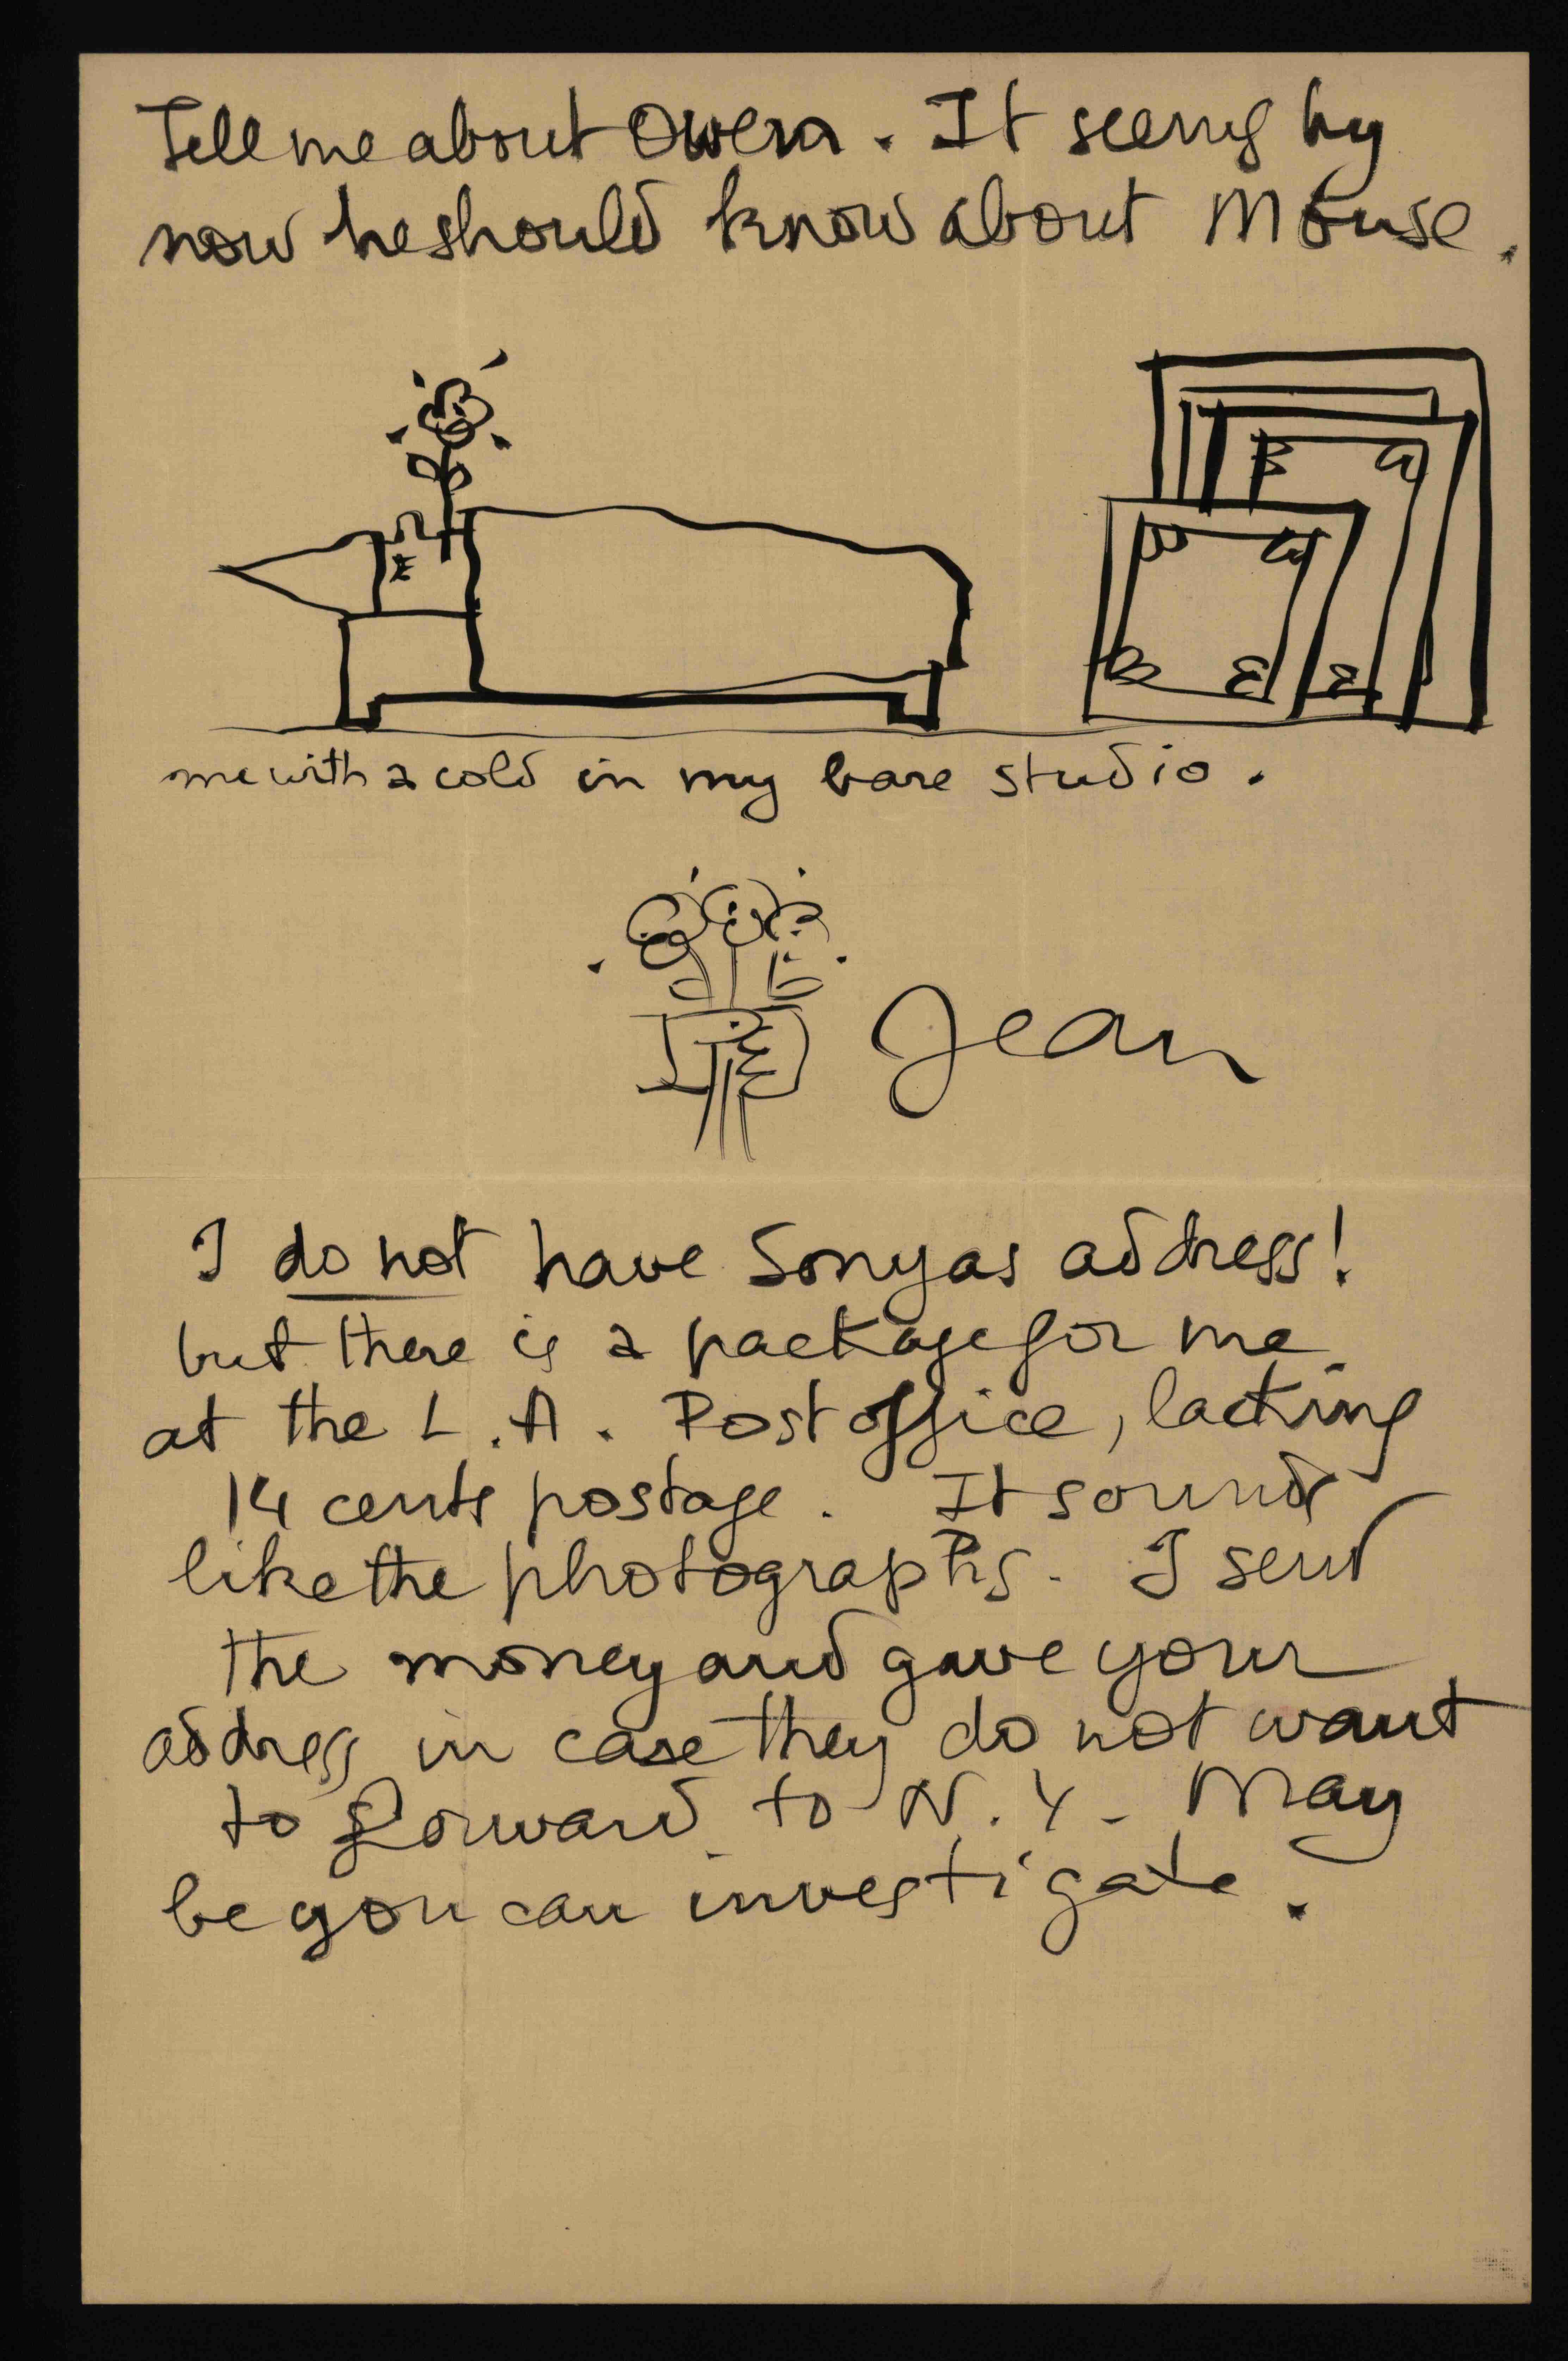 Tell me about Owen. It seems by
now he should know about Mouse.
me with a cold in my bare studio.
Jean
I do not have Sonyas address!
but there is a package for me
at the L.A. Post office, lacking
14 cents postage. It sounds
like the photographs. I send
the money and gave your
address in case they do not want
to forward to N.Y. May
be you can investigate.